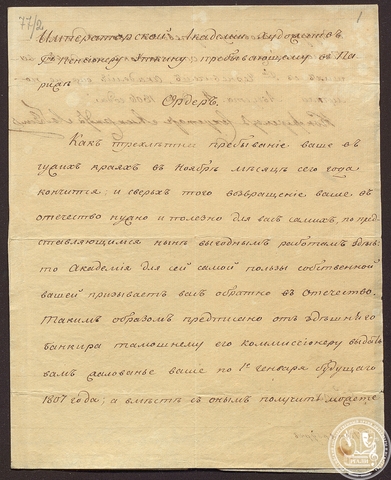 77/2
1
Императорской Академіи Художествъ
Гну Пенсіонеру Уткину пребывающему въ Па-
рижѣ
Ордеръ.
Какъ трехлѣтнѣе пребываніе ваше въ
чужихъ краяхъ въ Ноябрѣ мѣсяцѣ сего года
кончится; и сверьхъ того возвращеніе ваше въ
отечество нужно и полезно для васъ самихъ, по пред-
ставляющимся нынѣ выгоднымъ работамъ здѣсь,
то Академія для сей самой пользы собственной
вашей призываетъ васъ обратно въ Отечество.
Такимъ образомъ предписано отъ здѣшняго
банкира тамошнему его коммиссіонеру выдать
вамъ жалованье ваше по 1е Генваря будущаго
1807 года; а вмѣстѣ съ онымъ получить можете